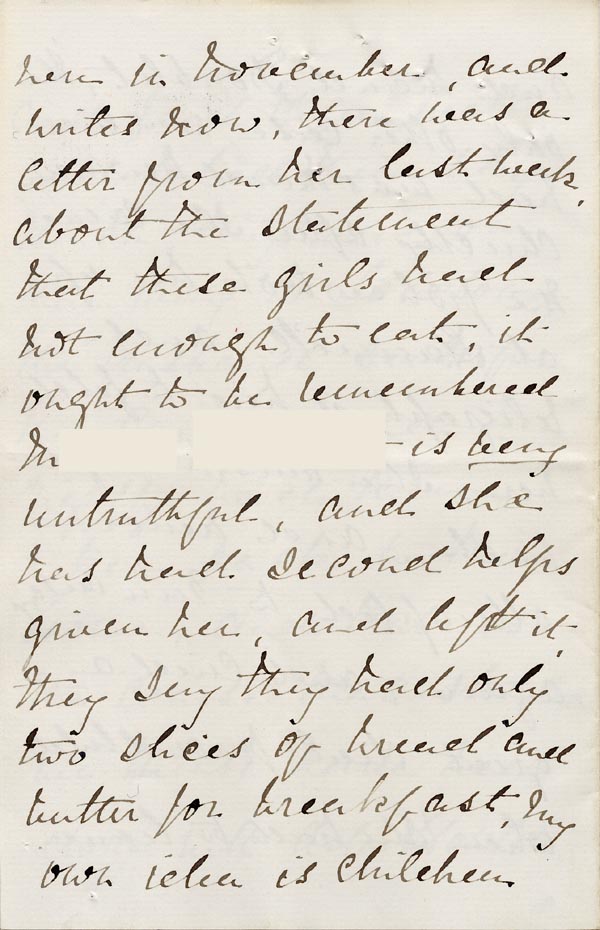 here in November, and
writes now, there was a
letter from her last week,
about the statement
that these girls had
not enough to eat, it
ought to be remembered
M — is very
untruthful, and she
has had second helps
given her, and left it,
they say they had only
two slices of bread and
butter for breakfast, my
own idea is children